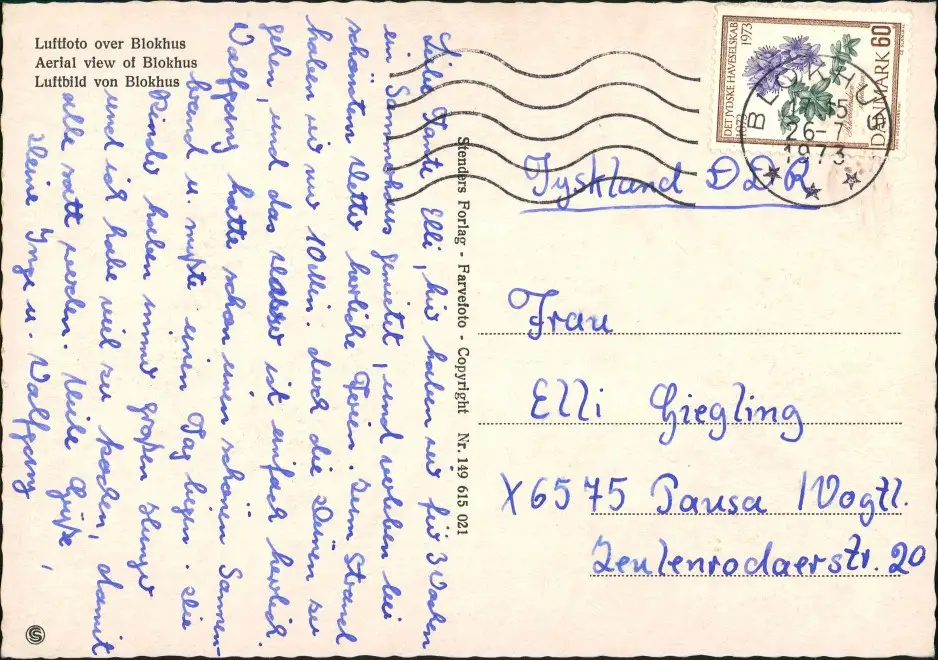 Luftfoto over Blokhus
Aerial view of Blokhus
Luftbild von Blokhus
Liebe Tante Elli, hier haben wir für 3 Wochen
ein Sommerhaus gemietet, und verleben bei
schönstem Wetter herrliche Ferien. Zum Strand
haben wir nur 10 Min. durch die Dünen zu
gehen, und das Wasser ist einfach herrlich.
Wolfgang hatte schon einen schönen Sonnen-
brand u. mußte einen Tag liegen. Die
Kinder haben immer großen Hunger
und ich habe viel zu kochen, damit
alle satt werden. Viele Grüße,
Deine Inge u. Wolfgang
Stenders Forlag - Farvefoto - Copyright Nr. 149 615 021
DET JYDSKE HAVESELSKAB
1873 1973
DANMARK 60
BLOKHUS
17-15
26-7
1973
Tyskland DDR
Frau
Elli Giegling
X6575 Pausa /Vogtl.
Zeulenrodaerstr. 20
S